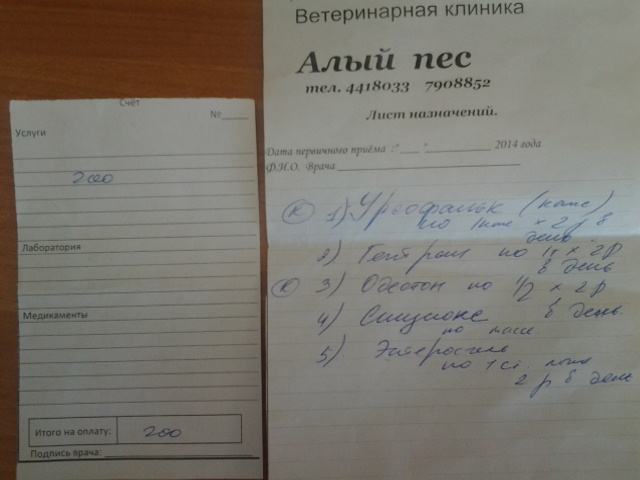 Счёт
№
Услуги
200
Лаборатория
Медикаменты
Итого на оплату: 200
Подпись врача:
Ветеринарная клиника
Алый пес
тел. 4418033 7908852
Лист назначений.
Дата первичного приёма :" " 2014 года
Ф.И.О. Врача
К 1) Урсофальк (капс)
по 1 капс × 2 р в
день
2) по 1т × 2 р
в день
К 3) Одестон по 1/2 × 2 р
в день.
4)
по
5) Энтеросгель
по 1 ст. ложк
2 р в день